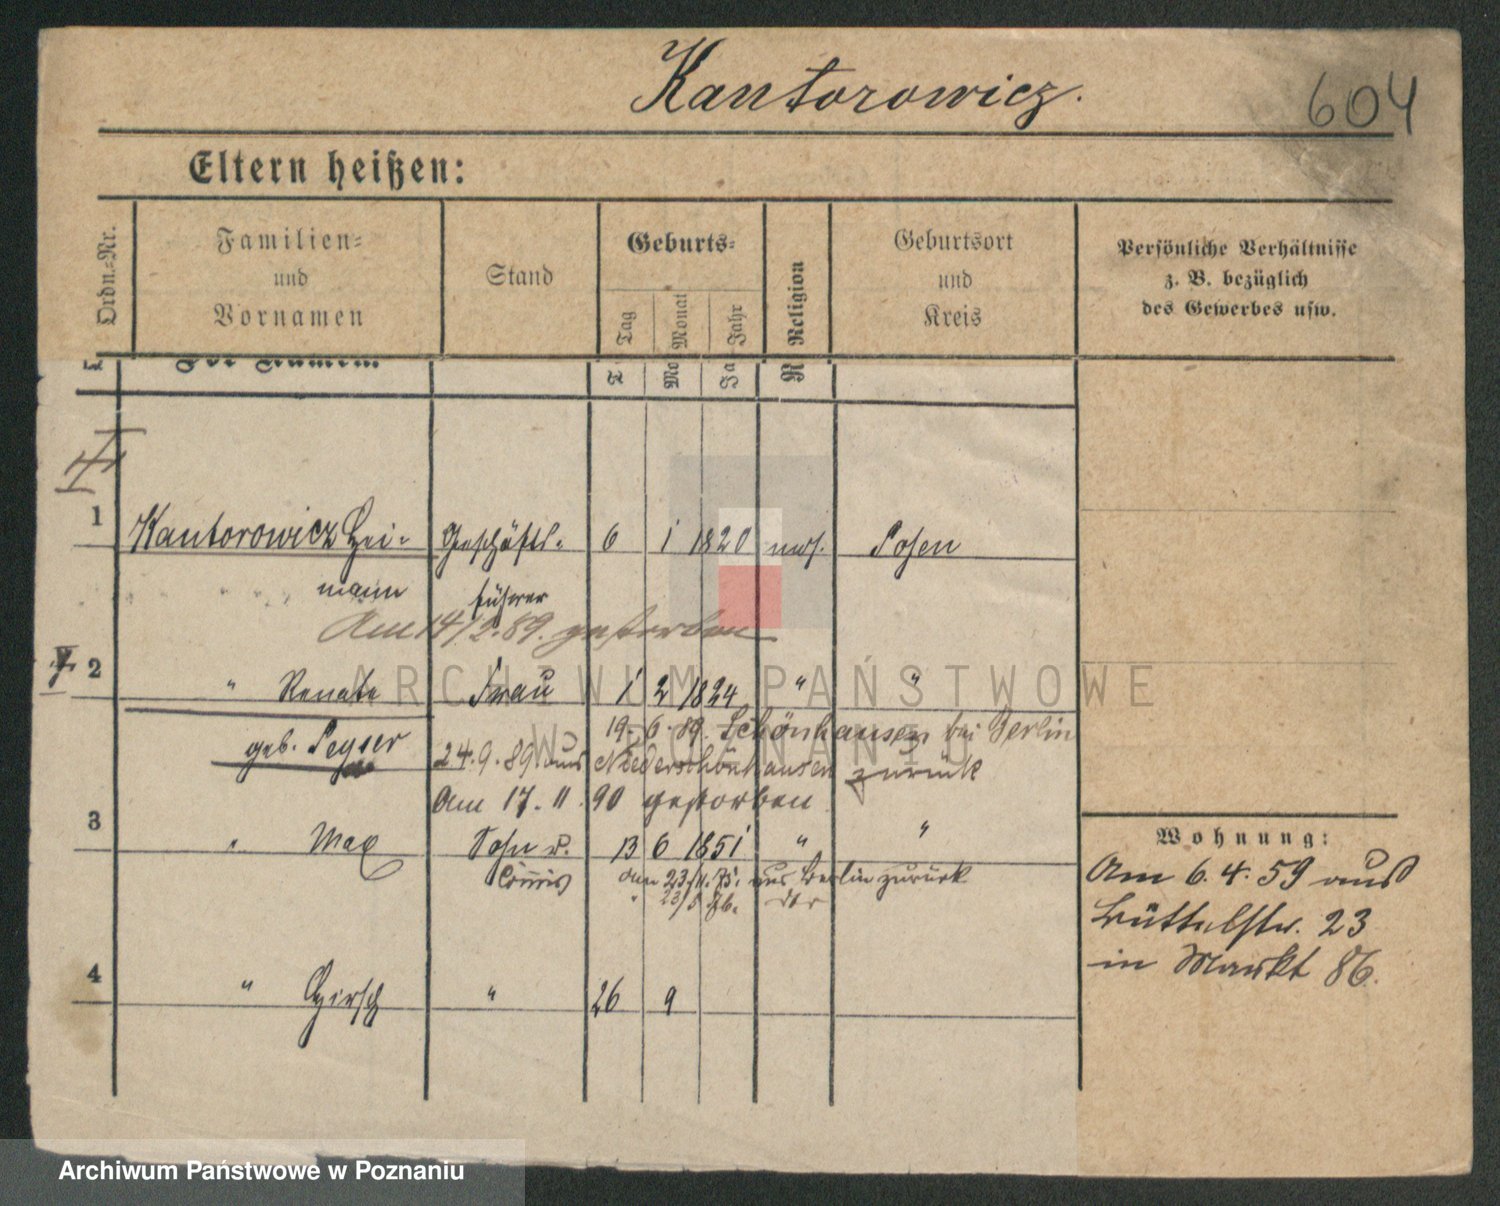 Kantorowicz.
604
Eltern heißen:
Ordn.-Nr.
Familien-
und
Vornamen
Stand
Geburts-
Tag
Monat
Jahr
Religion
Geburtsort
und
Kreis
Persönliche Verhältnisse
z. B. bezüglich
des Gewerbes usw.
1 Kantorowicz Hei- Geschäfts- 6 1 1820 mos. Posen
mann führer
Am 14/2.89. gestorben
2 " Renate Frau 1 2 1824 " "
geb. Peyser 19.6.89. Schönhausen bei Berlin
24.9.89 aus Niederschönhausen zurück
Am 17.11.90 gestorben
3 " Max Sohn u. 13 6 1851 " "
Commis Am 23/11.75. aus Berlin zurück
" 23/5 76. dor
4 " Hirsch " 26 9
Wohnung:
Am 6.4.59 aus
Büttelstr. 23
in Markt 86.
ARCHIWUM PAŃSTWOWE
W POZNANIU
Archiwum Państwowe w Poznaniu